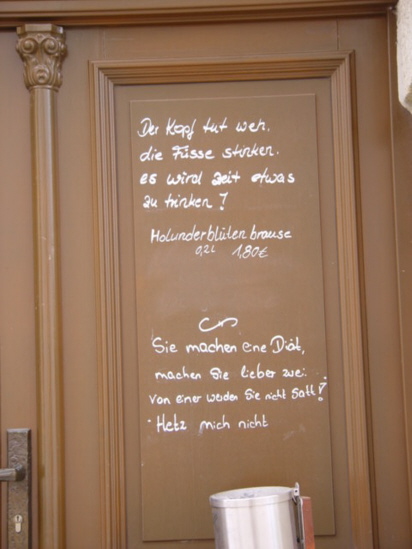 Der Kopf tut weh.
die Füsse stinken.
es wird Zeit etwas
zu trinken!
Holunderblüten brause
0,2l 1,80€
Sie machen eine Diät,
machen Sie lieber zwei.
von einer werden Sie nicht satt!
Hetz mich nicht